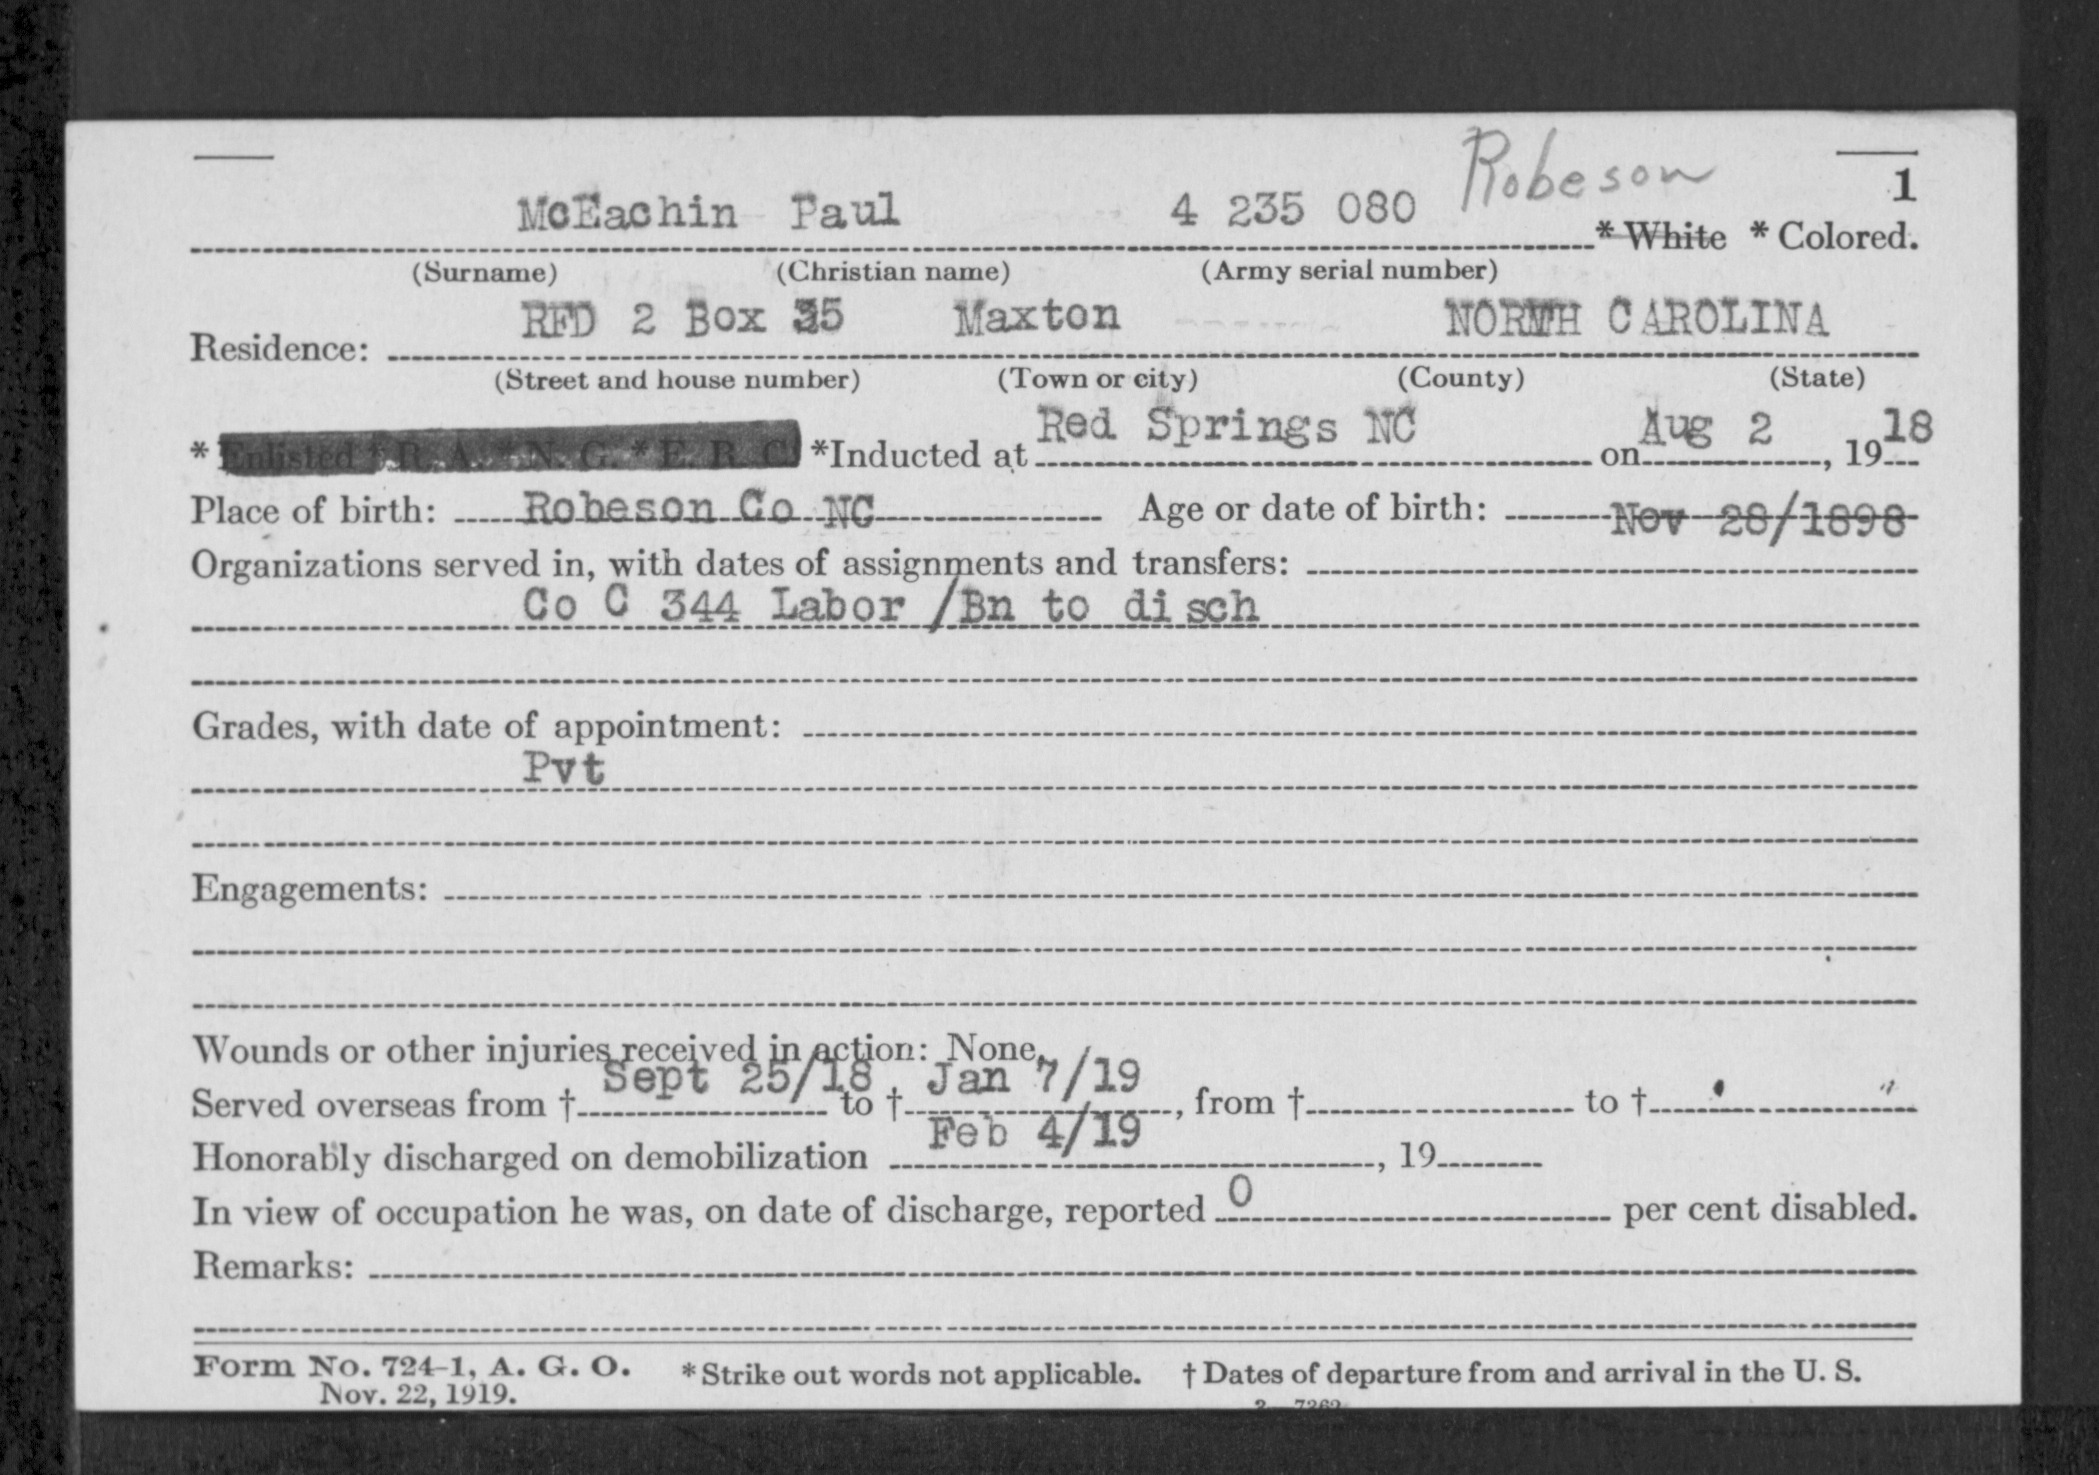 Robeson
1
McEachin Paul 4 235 080 * White * Colored.
(Surname) (Christian name) (Army serial number)
RFD 2 Box 35 Maxton NORTH CAROLINA
Residence:
(Street and house number) (Town or city) (County) (State)
* Enlisted * R. A. * N. G. * E. R. C. *Inducted at Red Springs NC on Aug 2, 1918
Place of birth: Robeson Co NC Age or date of birth: Nov 28/1898
Organizations served in, with dates of assignments and transfers:
Co C 344 Labor /Bn to disch
Grades, with date of appointment:
Pvt
Engagements:
Wounds or other injuries received in action: None.
Served overseas from † Sept 25/18 to † Jan 7/19, from † to †
Honorably discharged on demobilization Feb 4/19, 19
In view of occupation he was, on date of discharge, reported 0 per cent disabled.
Remarks:
Form No. 724-1, A. G. O. *Strike out words not applicable. † Dates of departure from and arrival in the U. S.
Nov. 22, 1919.